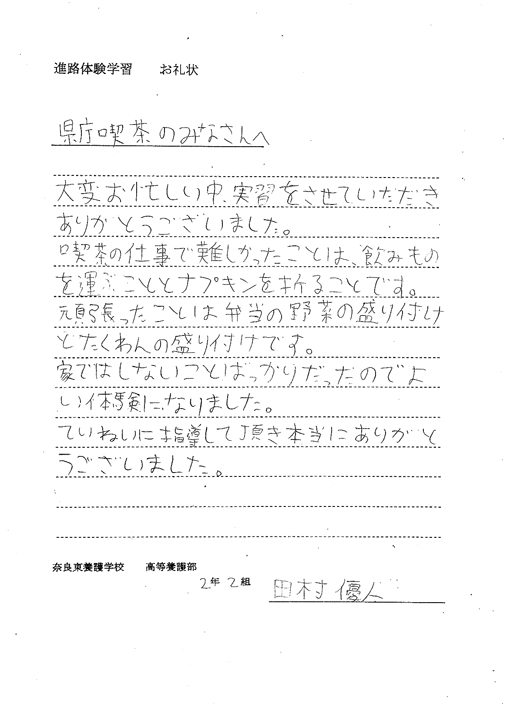 進路体験学習　お礼状
県庁喫茶のみなさんへ
大変お忙しい中、実習をさせていただき
ありがとうございました。
喫茶の仕事で難しかったことは、飲みもの
を運ぶこととナプキンを折ることです。
頑張ったことは弁当の野菜の盛り付け
とたくわんの盛り付けです。
家ではしないことばっかりだったのでよ
い体験になりました。
ていねいに指導して頂き本当にありがと
うございました。
奈良東養護学校　高等養護部
2年2組　田村優人